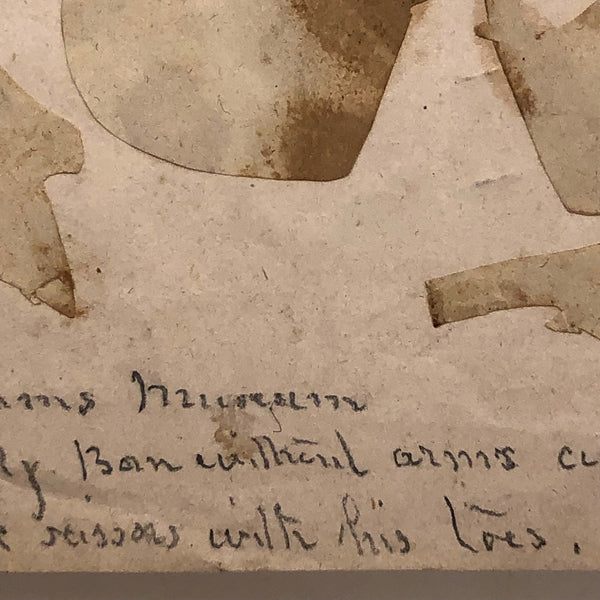 ums Museum
ly Born without arms cu
e sissors with his toes.